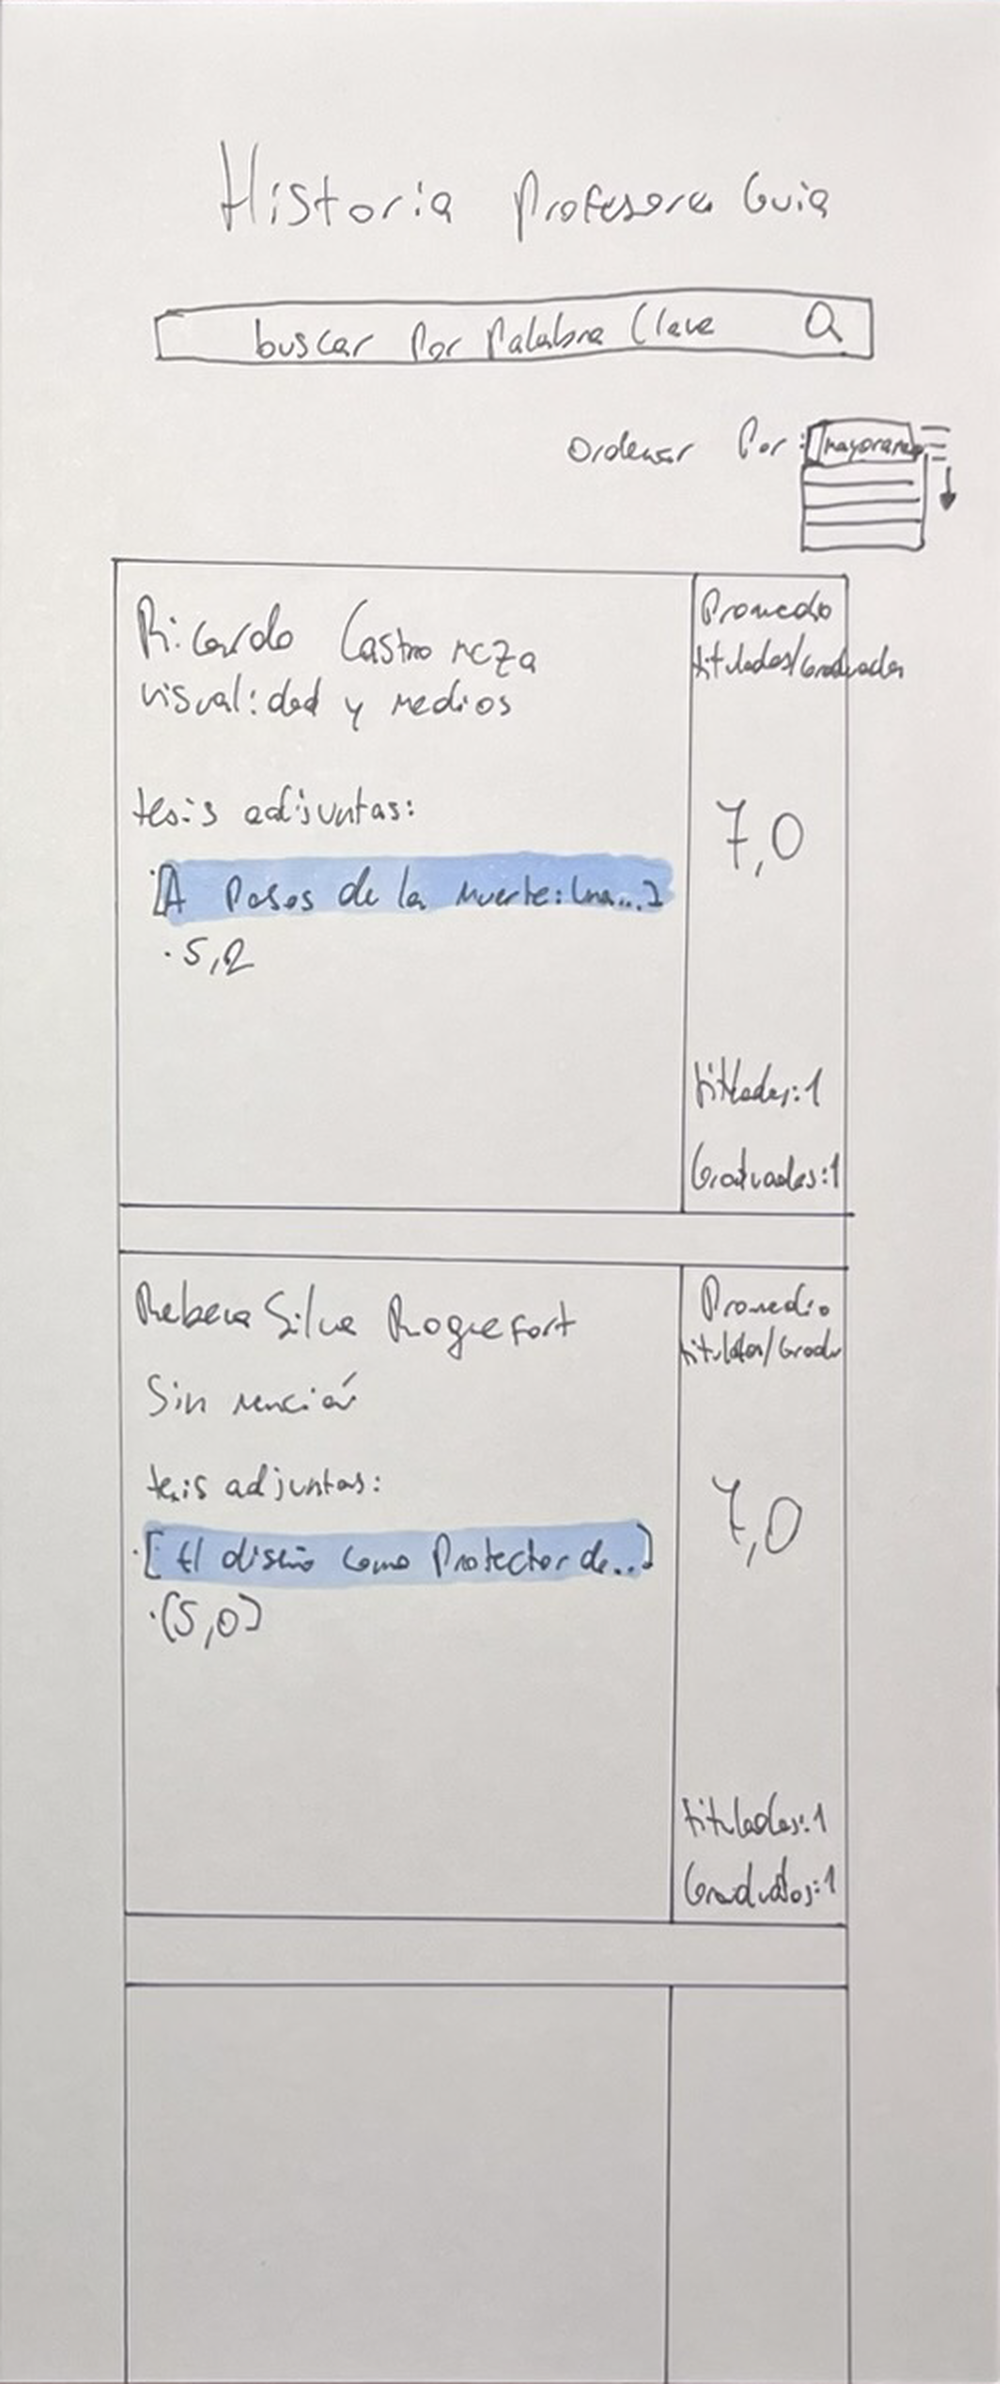 Historia Profesora Guia
buscar por palabra clave
Ordenar Por:
Ricardo Castro
visualidad y medios
tesis adjuntas:
[A Pasos de la Muerte: Una...]
· 5,2
Promedio
titulados/Graduados
7,0
titulados: 1
Graduados: 1
Rebeca Silva Roquefort
Sin mención
tesis adjuntas:
· [El diseño como Protector de...]
· (5,0)
Promedio
titulados/Gradu
7,0
titulados: 1
Graduados: 1